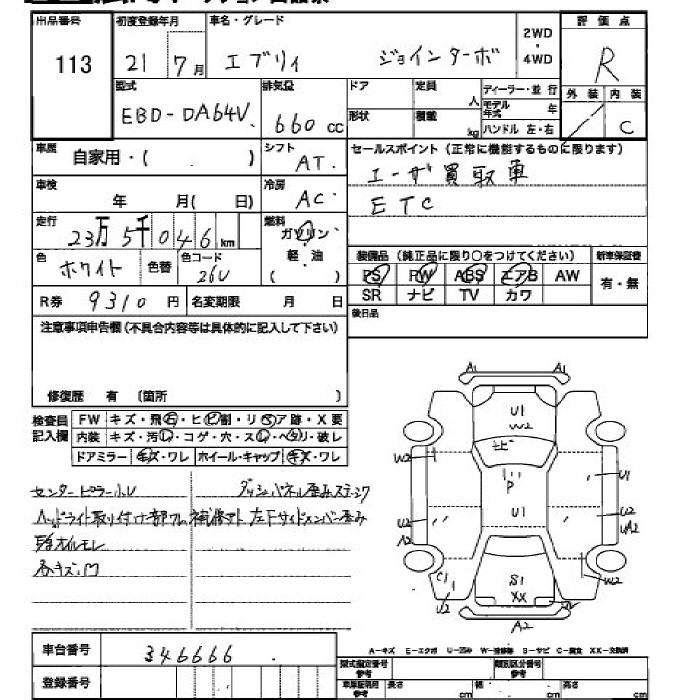 出品番号 初度登録年月 車名・グレード 2WD・4WD 評価点
113 21 7月 エブリィ ジョインターボ R
型式 排気量 ドア 定員 人 ディーラー・並行 外装 内装
EBD-DA64V 660cc 形状 積載 kg モデル年式 年 ハンドル 左・右 C
車歴 自家用・( ) シフト AT セールスポイント(正常に機能するものに限ります)
車検 年 月( 日) 冷房 AC ユーザー買取車
ETC
走行 23万5千046km 燃料 ガソリン・軽油 ( )
色 ホワイト 色替 色コード 26U 装備品(純正品に限り○をつけてください) 新車保証書
PS PW ABS エアB AW 有・無
R券 9310円 名変期限 月 日 SR ナビ TV カワ
注意事項申告欄(不具合内容等は具体的に記入して下さい) 後日品
修復歴 有 (箇所 )
検査員記入欄 FW キズ・飛石・ヒビ割・リペア跡・X要
内装 キズ・汚レ・コゲ・穴・スレ・ヘタリ・破レ
ドアミラー キズ・ワレ ホイール・キャップ キズ・ワレ
センターピラー小U ダッシュパネル歪み
ヘッドライト取り付け部 左Fサイドメンバー歪み
オイルモレ
A1 A1
U1
W2
ヒビ
P
W2 U1
U1
U2 U2
A2 UA2
C1 W2
U2
S1
XX
A2
A-キズ E-エクボ U-凹み W-補修跡 S-サビ C-腐食 XX-交換済
車台番号 346666
登録番号
型式指定番号 参考 類別区分番号 参考
参考 長さ cm 幅 cm 高さ cm